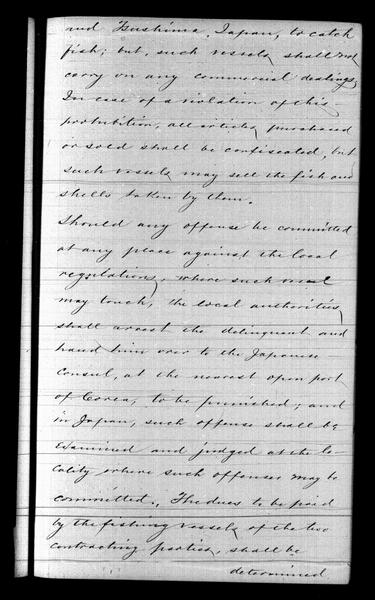 and Tsushima, Japan, to catch
fish; but, such vessels shall not
carry on any commercial dealings,
In case of a violation of this
prohibition, all articles purchased
or sold shall be confiscated, but
such vessels may sell the fish and
shells taken by them.
Should any offense be committed
at any place against the local
regulations, where such vessel
may touch, the local authorities
shall arrest the delinquent and
hand him over to the Japanese
Consul, at the nearest open port
of Corea, to be punished; and
in Japan, such offense shall be
examined and judged at the lo-
cality where such offenses may be
committed. The dues to be paid
by the fishing vessels of the two
contracting parties, shall be
determined